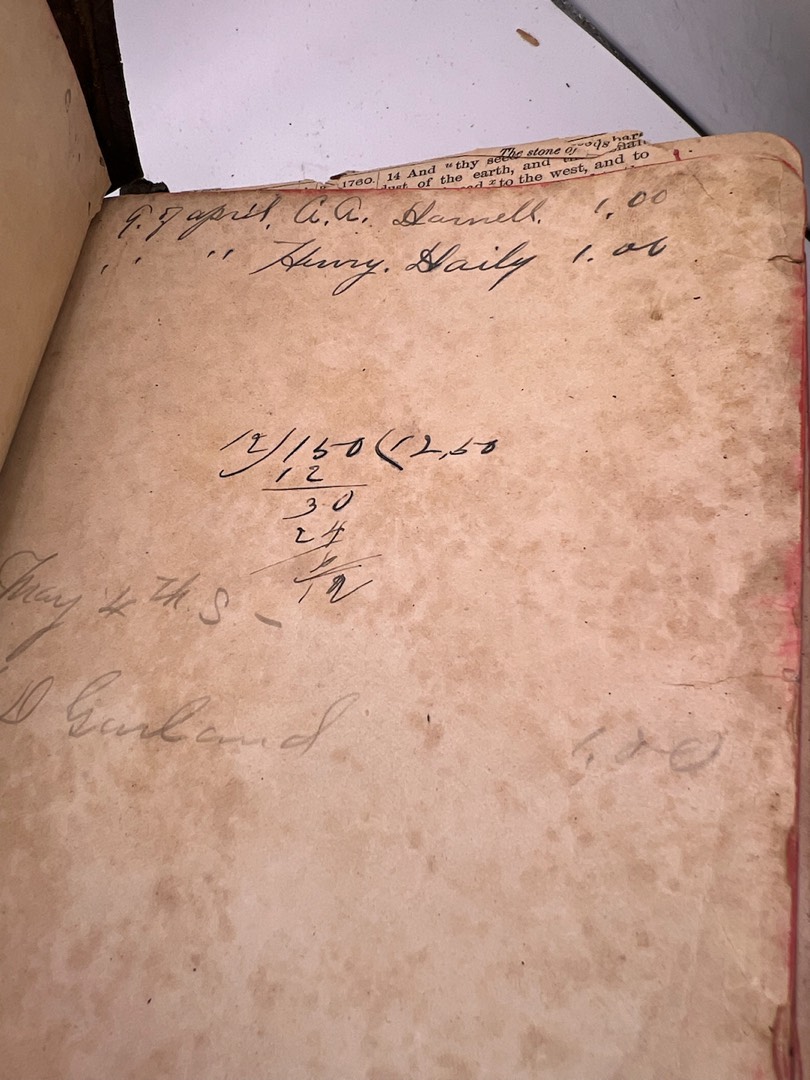 The stone of
1760. 14 And "thy see
dust of the earth, and
to the west, and to
9. 7 april. A. A. Harnell. 1.00
" " Henry. Haily 1.00
12)150(12,50
12
30
24
May 4th S -
D Garland 1.00